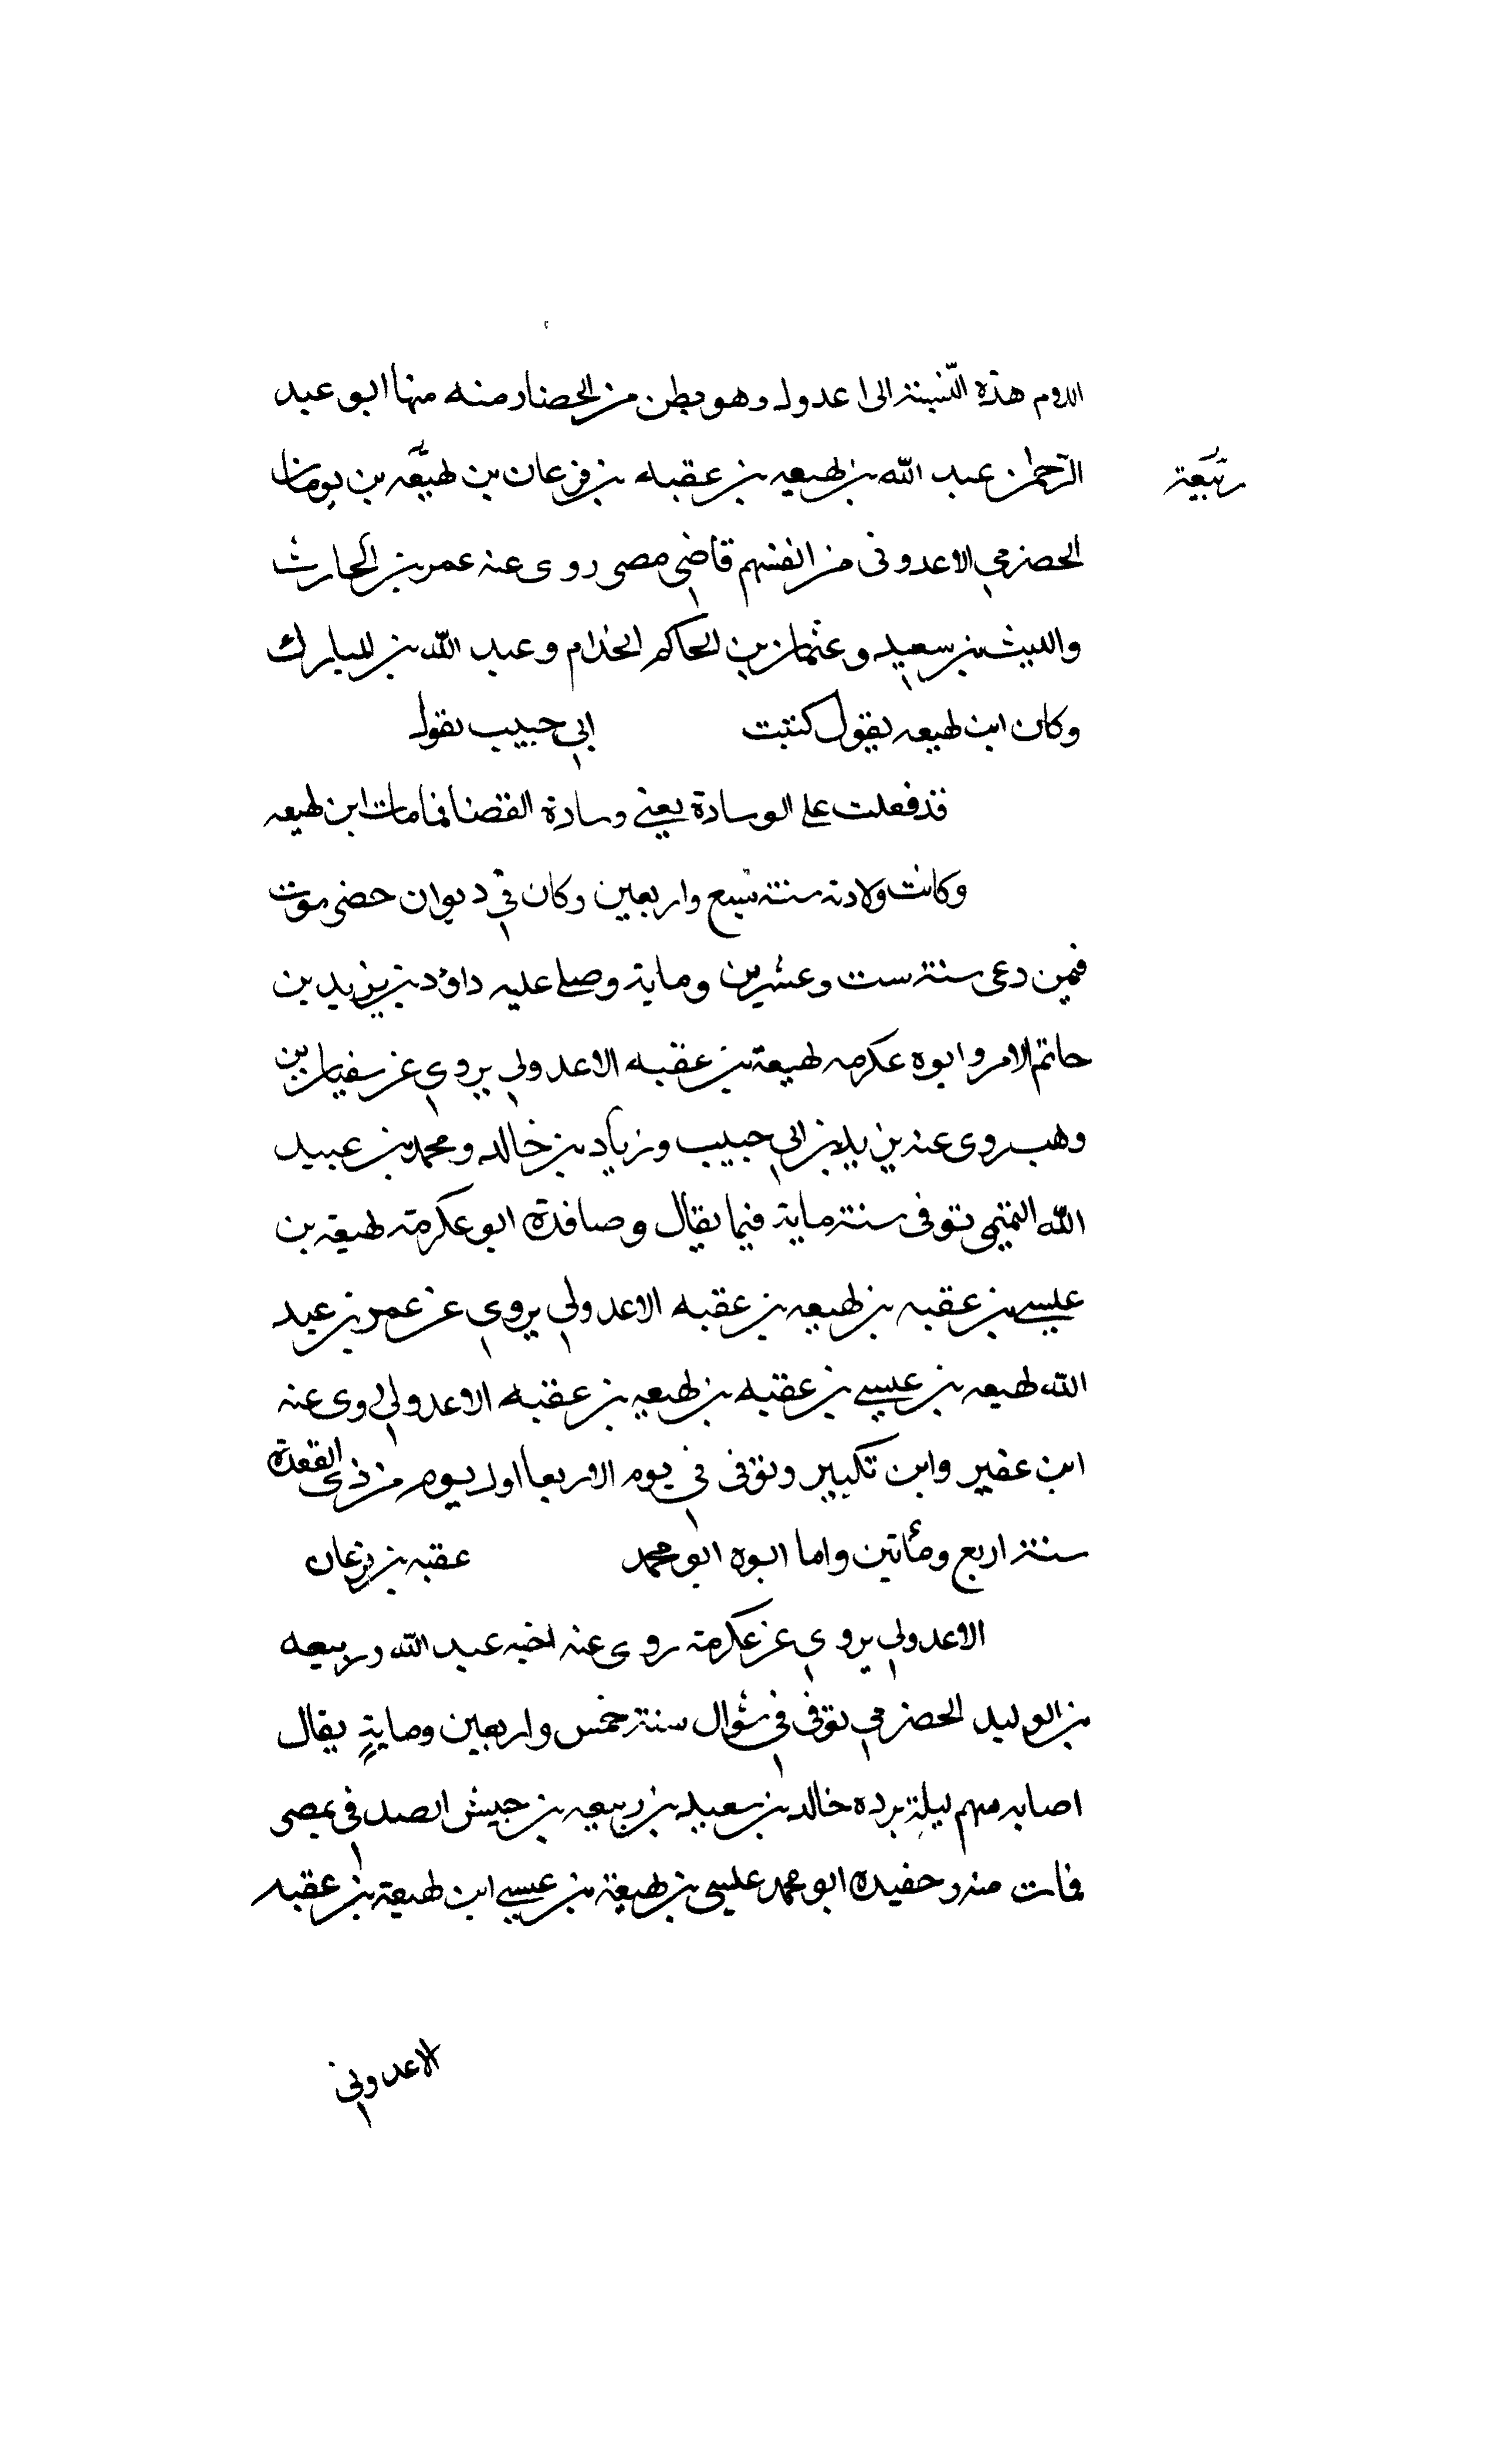 الدوم هذه النسبة الى اعدول وهو بطن من الحضارمة منها ابو عبد
الرحمن عبد الله بن لهيعه بن عقبه بن فرعان بن لهيعه بن يومان
ربيعة
الحضرمي الاعدوني من انفسهم قاضي مصر روى عنه عمر بن الحارث
والليث بن سعيد وعثمان بن الحاكم الخذام وعبد الله بن المبارك
وكان ابن لهيعه يقول كنت ابي حبيب يقول
قد فعلت على الوسادة يعني وسادة القضا فما مات ابن لهيعه
وكانت ولادته سنة سبع واربعين وكان في ديوان حضرموت
فمن دعى سنة ست وعشرين وماية وصلى عليه داؤد بن يزيد بن
حاتم الامر وابوه عكرمه لهيعة بن عقبه الاعدولي يروي عن سفيان بن
وهب روى عنه يزيد بن ابي حبيب وزياد بن خالد ومحمد بن عبيد
الله التميمي توفى سنة ماية فيما يقال وصافدة ابو عكرمة لهيعة بن
عيسى بن عقبه بن لهيعه بن عقبه الاعدولي يروي عن عمر بن عبد
الله لهيعه بن عيسى بن عقبه بن لهيعه بن عقبه الاعدولي روى عنه
ابن عفير وابن تكبير وتوفى في يوم الاربعا اول يوم من ذى القعدة
سنة اربع ومأتين واما ابوه ابو محمد عقبه بن فرعان
الاعدولي يروي عن عكرمة روى عنه اخيه عبد الله وربيعه
بن الوليد الحضرمي توفى في شوال سنة خمس واربعين وماية يقال
اصابه سهم ليلة برده خالد بن سعيد بن ربيعه بن حبيش الصدفي بمصر
فمات منه وحفيده ابو محمد عيسى بن لهيعة بن عيسى ابن لهيعة بن عقبه
الاعدوني